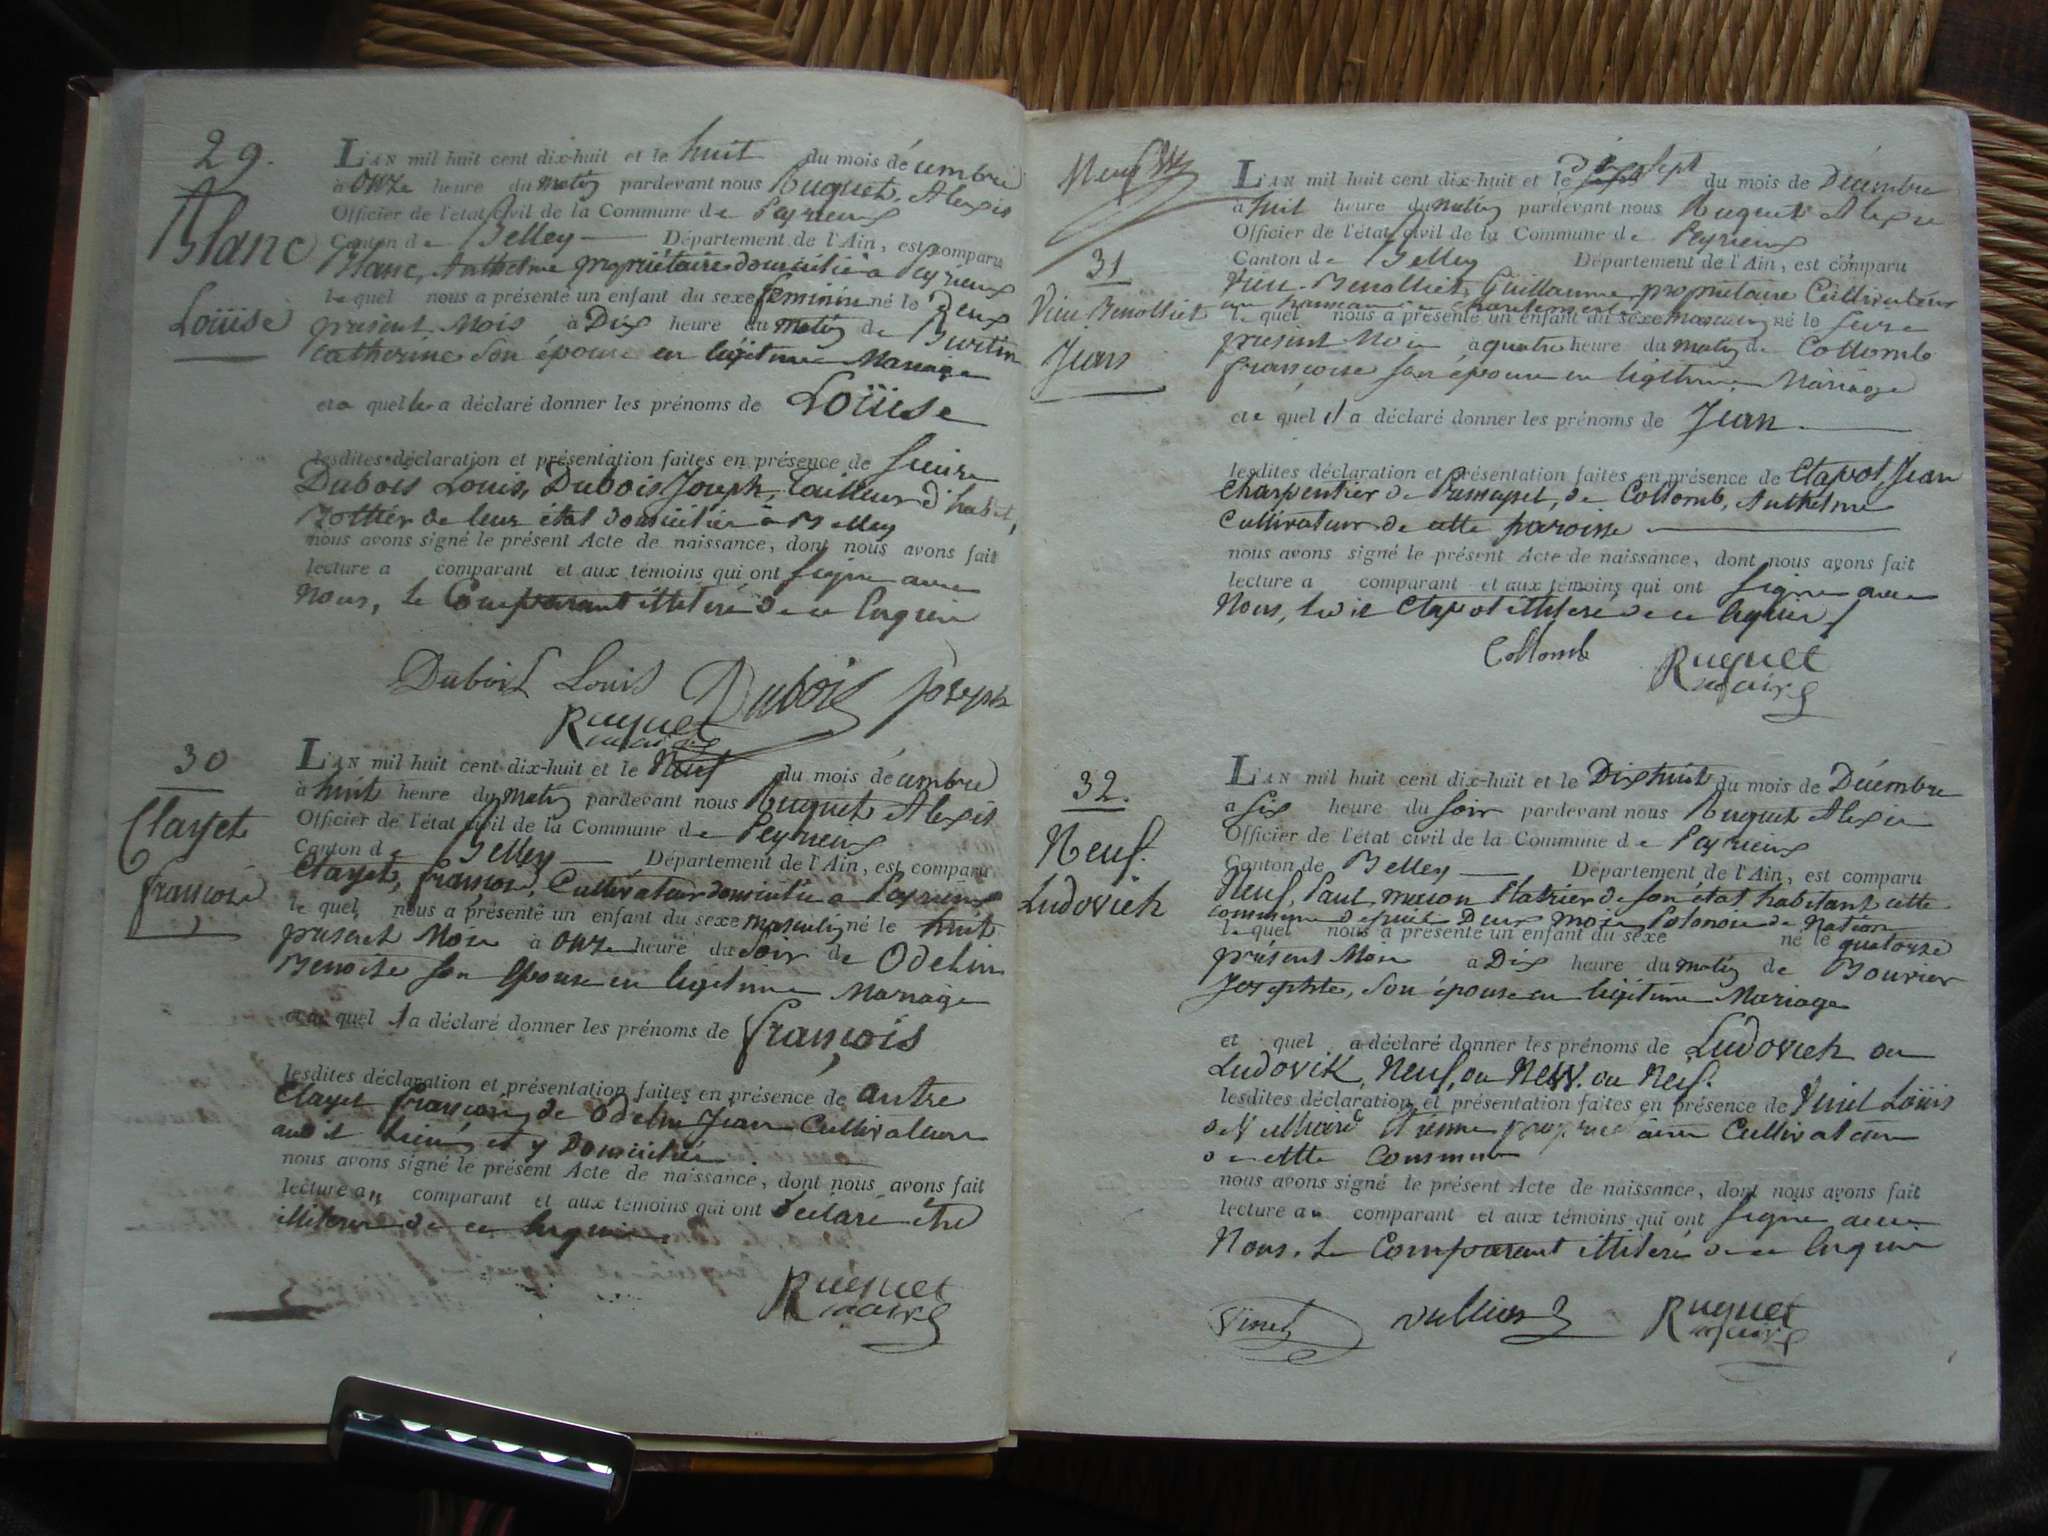 29.
Blanc
Loüise
L'AN mil huit cent dix-huit et le huit du mois décembre
à onze heure du matin pardevant nous Ruquet, Alexis
Officier de l'état civil de la Commune de Peyrieux
Canton de Belley Département de l'Ain, est comparu
Blanc, Anthelme propriétaire domicilié à Peyrieux
lequel nous a présenté un enfant du sexe feminin né le Deux
présent Mois à Dix heure du matin de Burtin
Catherine son épouse en légitime Mariage
et a quelle a déclaré donner les prénoms de Loüise
lesdites déclaration et présentation faites en présence de
Dubois Louis, Dubois Joseph, tailleur d'habit,
Bottier de leur état domicilié à Belley
nous avons signé le présent Acte de naissance, dont nous avons fait
lecture a comparant et aux témoins qui ont signe avec
Nous, le Comparant illiteré de ce Enquis
Dubois Louis Dubois Joseph
Ruquet
maire
30
Clayet
françois
L'AN mil huit cent dix-huit et le Neuf du mois décembre
à huit heure du matin pardevant nous Ruquet Alexis
Officier de l'état civil de la Commune de Peyrieux
Canton de Belley Département de l'Ain, est comparu
Clayet, françois, Cultivateur domicilié a Peyrieux
le quel nous a présenté un enfant du sexe masculin né le huit
présent Mois à onze heure du soir de Odelin
Benoite son Epouse en légitime Mariage
et au quel il a déclaré donner les prénoms de François
lesdites déclaration et présentation faites en présence de autre
Clayet françois, de Odelin Jean Cultivateur
audit Lieu et y Domicilié
nous avons signé le présent Acte de naissance, dont nous avons fait
lecture au comparant et aux témoins qui ont déclaré être
illiteré de ce Enquis
Ruquet
maire
Neuf W
31
Vieu Benolliet
Jean
L'AN mil huit cent dix-huit et le dix sept du mois de Décembre
à huit heure du matin pardevant nous Ruquet Alexis
Officier de l'état civil de la Commune de Peyrieux
Canton de Belley Département de l'Ain, est comparu
Vieu-Benolliet, Guillaume, propriétaire Cultivateur
au hameau de
le quel nous a présenté un enfant du sexe masculin né le seize
présent Mois à quatre heure du matin de Collomb
françoise son épouse en légitime Mariage
et a quel il a déclaré donner les prénoms de Jean
lesdites déclaration et présentation faites en présence de Clapot, Jean
Charpentier de de Collomb, Anthelme
Cultivateur de cette paroisse
nous avons signé le présent Acte de naissance, dont nous avons fait
lecture a comparant et aux témoins qui ont signe avec
Nous, ledit Clapot illiteré de ce Enquis
Collomb Ruquet
maire
32.
Neuf.
Ludovich
L'AN mil huit cent dix-huit et le Dixhuit du mois de Décembre
à six heure du soir pardevant nous Ruquet Alexis
Officier de l'état civil de la Commune de Peyrieux
Canton de Belley Département de l'Ain, est comparu
Neuf, Paul, maçon Platrier de son état habitant cette
commune depuis Deux mois Polonois de Nation
le quel nous a présenté un enfant du sexe né le quatorze
présent Mois à Dix heure du matin de Bouvier
Josephte, son épouse en légitime Mariage
et quel a déclaré donner les prénoms de Ludovich ou
Ludovik, Neuf, ou New. ou Neif.
lesdites déclaration et présentation faites en présence de Vinit Loüis
de Vulliard Etienne Cultivateur
de cette Commune
nous avons signé le présent Acte de naissance, dont nous avons fait
lecture au comparant et aux témoins qui ont signe avec
Nous. le Comparant illiteré de ce Enquis
Vinet Vulliard Ruquet
maire